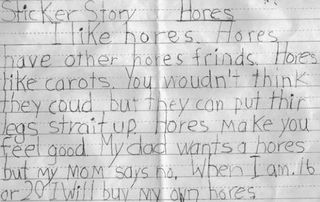 Sticker Story Hores
I like hores. Hores
have other hores frinds. Hores
like carots. You woudn't think
they coud but they can put thir
legs strait up. Hores make you
feel good. My dad wants a hores
but my mom says no. When I am 16
or 20 I will buy my own hores.